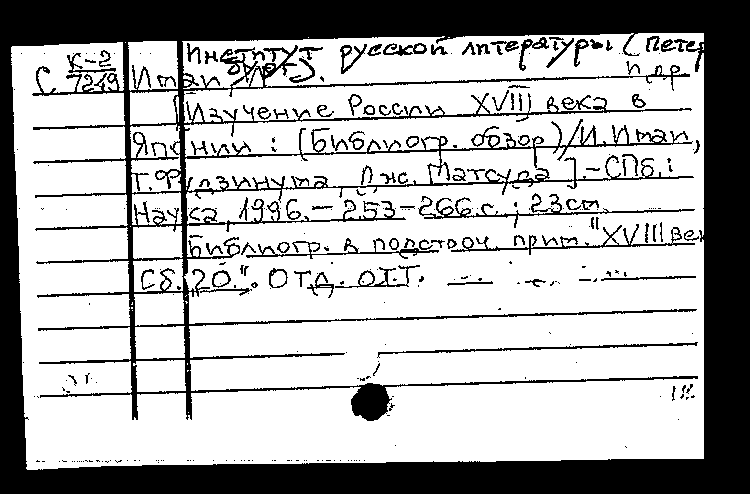 Институт русской литературы (Петер
С К-2 Итан, др
7249
[Изучение России XVIII века в
Японии : (Библиогр. обзор)/И. Итан,
Т. Фудзинума, Дж. Мацуда].-СПб.:
Наука, 1996.-253-266 с.; 23см.
Библиогр. в подстроч. прим. "XVIII век
Сб. 20.". Отд. отт.